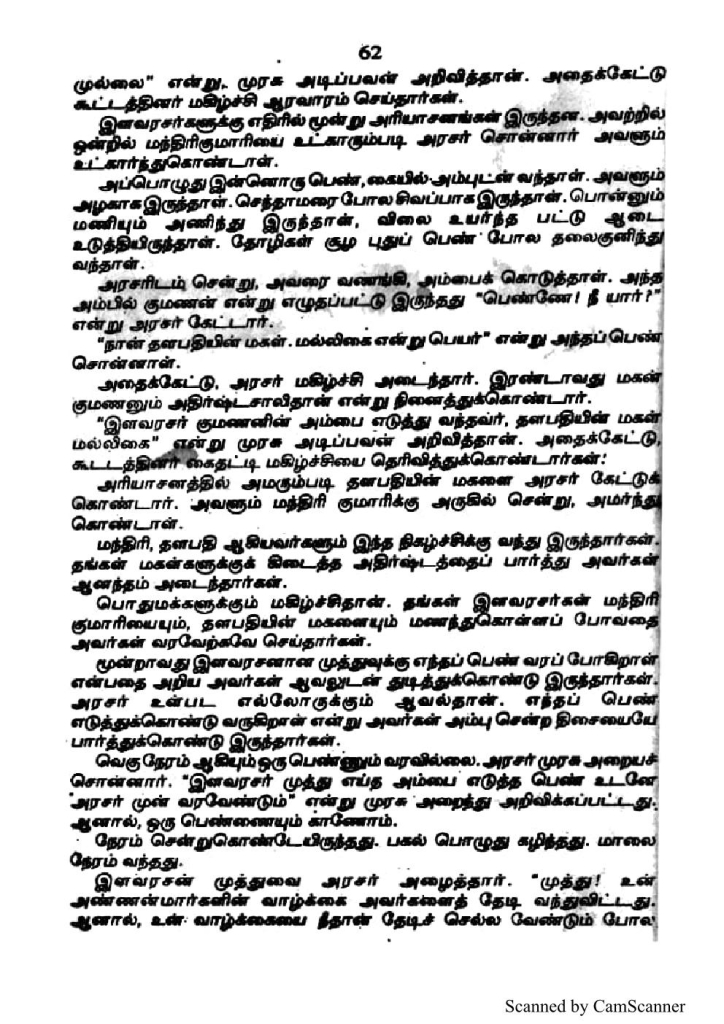 62
முல்லை" என்று, முரசு அடிப்பவன் அறிவித்தான். அதைக்கேட்டு
கூட்டத்தினர் மகிழ்ச்சி ஆரவாரம் செய்தார்கள்.
இளவரசர்களுக்கு எதிரில் மூன்று அரியாசனங்கள் இருந்தன. அவற்றில்
ஒன்றில் மந்திரிகுமாரியை உட்காரும்படி அரசர் சொன்னார் அவளும்
உட்கார்ந்துகொண்டாள்.
அப்பொழுது இன்னொரு பெண், கையில் அம்புடன் வந்தாள். அவளும்
அழகாக இருந்தாள். செந்தாமரை போல சிவப்பாக இருந்தாள். பொன்னும்
மணியும் அணிந்து இருந்தாள், விலை உயர்ந்த பட்டு ஆடை
உடுத்தியிருந்தாள். தோழிகள் சூழ புதுப் பெண் போல தலைகுனிந்து
வந்தாள்.
அரசரிடம் சென்று, அவரை வணங்கி, அம்பைக் கொடுத்தாள். அந்த
அம்பில் குமணன் என்று எழுதப்பட்டு இருந்தது "பெண்ணே! நீ யார்?"
என்று அரசர் கேட்டார்.
"நான் தளபதியின் மகள். மல்லிகை என்று பெயர்" என்று அந்தப் பெண்
சொன்னாள்.
அதைக்கேட்டு, அரசர் மகிழ்ச்சி அடைந்தார். இரண்டாவது மகன்
குமணனும் அதிர்ஷ்டசாலிதான் என்று நினைத்துக்கொண்டார்.
"இளவரசர் குமணனின் அம்பை எடுத்து வந்தவர், தளபதியின் மகள்
மல்லிகை" என்று முரசு அடிப்பவன் அறிவித்தான். அதைக்கேட்டு,
கூட்டத்தினர் கைதட்டி மகிழ்ச்சியை தெரிவித்துக்கொண்டார்கள்!
அரியாசனத்தில் அமரும்படி தளபதியின் மகளை அரசர் கேட்டுக்
கொண்டார். அவளும் மந்திரி குமாரிக்கு அருகில் சென்று, அமர்ந்து
கொண்டாள்.
மந்திரி, தளபதி ஆகியவர்களும் இந்த நிகழ்ச்சிக்கு வந்து இருந்தார்கள்.
தங்கள் மகள்களுக்குக் கிடைத்த அதிர்ஷ்டத்தைப் பார்த்து அவர்கள்
ஆனந்தம் அடைந்தார்கள்.
பொதுமக்களுக்கும் மகிழ்ச்சிதான். தங்கள் இளவரசர்கள் மந்திரி
குமாரியையும், தளபதியின் மகளையும் மணந்துகொள்ளப் போவதை
அவர்கள் வரவேற்கவே செய்தார்கள்.
மூன்றாவது இளவரசனான முத்துவுக்கு எந்தப் பெண் வரப் போகிறாள்
என்பதை அறிய அவர்கள் ஆவலுடன் துடித்துக்கொண்டு இருந்தார்கள்.
அரசர் உள்பட எல்லோருக்கும் ஆவல்தான். எந்தப் பெண்
எடுத்துக்கொண்டு வருகிறாள் என்று அவர்கள் அம்பு சென்ற திசையையே
பார்த்துக்கொண்டு இருந்தார்கள்.
வெகுநேரம் ஆகியும் ஒரு பெண்ணும் வரவில்லை. அரசர் முரசு அறையச்
சொன்னார். "இளவரசர் முத்து எய்த அம்பை எடுத்த பெண் உடனே
அரசர் முன் வரவேண்டும்" என்று முரசு அறைந்து அறிவிக்கப்பட்டது.
ஆனால், ஒரு பெண்ணையும் காணோம்.
நேரம் சென்றுகொண்டேயிருந்தது. பகல் பொழுது கழிந்தது. மாலை
நேரம் வந்தது.
இளவரசன் முத்துவை அரசர் அழைத்தார். "முத்து! உன்
அண்ணன்மார்களின் வாழ்க்கை அவர்களைத் தேடி வந்துவிட்டது.
ஆனால், உன் வாழ்க்கையை நீதான் தேடிச் செல்ல வேண்டும் போல
Scanned by CamScanner